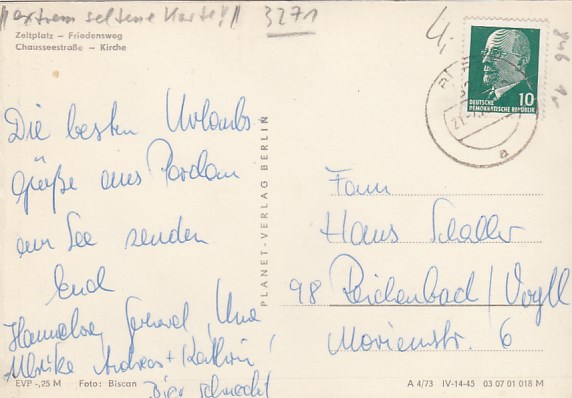 !! extrem seltene Karte !!
3271
4,-
Zeltplatz – Friedensweg
Chausseestraße – Kirche
10
DEUTSCHE
DEMOKRATISCHE REPUBLIK
Die besten Urlaubs
grüße aus
am See senden
Euch
Hannelore, Gerhard,
Ulrike Andreas + Kathrin,
Bier schmeckt
PLANET-VERLAG BERLIN
Fam
Hans Schaller
98 Reichenbach/Vogtl
Marienstr. 6
EVP -,25 M Foto: Biscan
A 4/73 IV-14-45 03 07 01 018 M